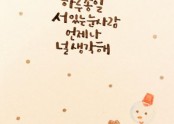 하루종일
서있는 눈사람
언제나
널 생각해